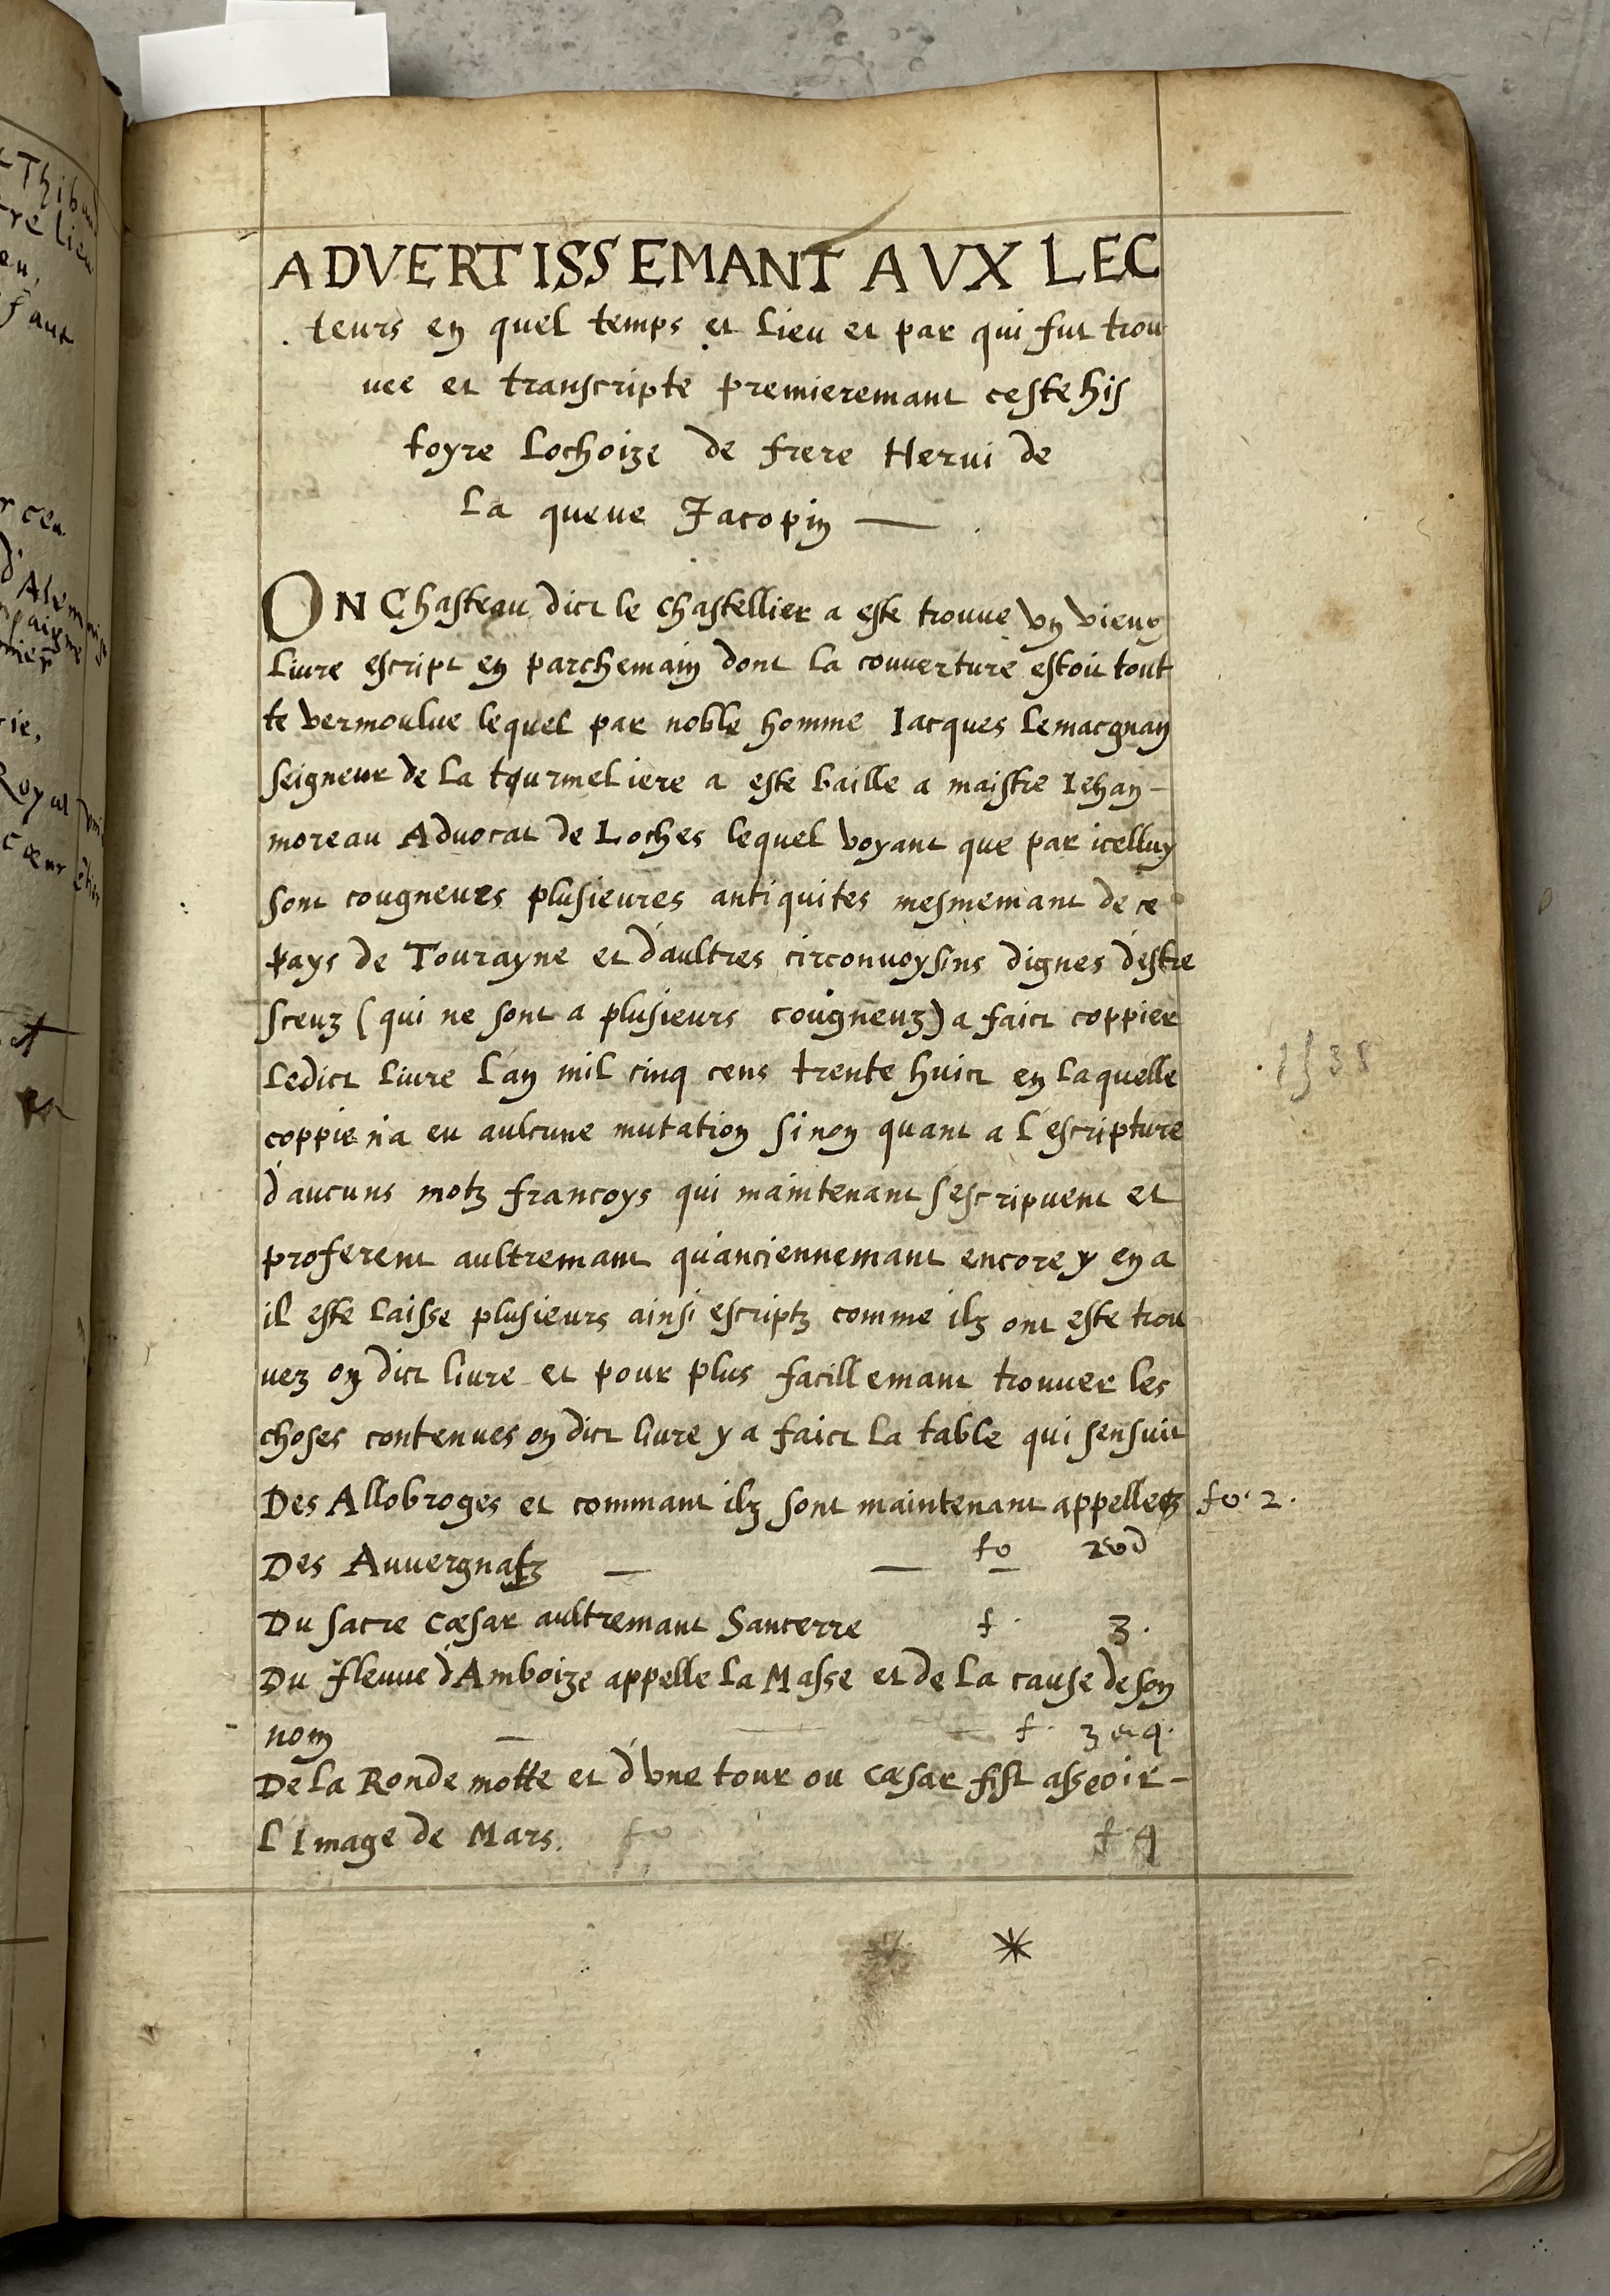 ADVERTISSEMANT AVX LEC
teurs en quel temps et lieu et par qui fut trou
uee et transcripte premieremant ceste his
toyre Lochoize de frere Herui de
La queue Jacopin —
ON Chasteau dict le chastellier a este trouue vn vieux
Liure escript en parchemain dont la couuerture estoit tout
te vermoulue lequel par noble homme Iacques Lemacgnan
seigneur de la tourmeliere a este baille a maistre Iehan -
moreau Aduocat de Loches lequel voyant que par icelluy
sont cougneues plusieures antiquites mesmemant de ce
pays de Tourayne et d'aultres circonuoysins dignes d'estre
sceuz (qui ne sont a plusieurs cougneuz) a faict coppier
Ledict Liure L'an mil cinq cens trente huict en laquelle
1538
coppie n'a eu aulcune mutation sinon quant a l'escripture
d'aucuns motz francoys qui maintenant s'escripuent et
proferent aultremant qu'anciennemant encore y en a
il este laisse plusieurs ainsi escriptz comme ilz ont este trou
uez on dict liure et pour plus facillemant trouuer les
choses contenues on dict liure y a faict la table qui sensuit
Des Allobroges et commant ilz sont maintenant appellez fo. 2.
Des Auuergnatz — — fo
Du sacre Cæsar aultremant Sancerre f. 3.
Du fleuue d'Amboize appelle la Masse et de la cause de son
nom — f. 3 et 4.
De la Ronde motte et d'vne tour ou Cæsar fist asseoir -
L'Image de Mars. fo f. 4
*